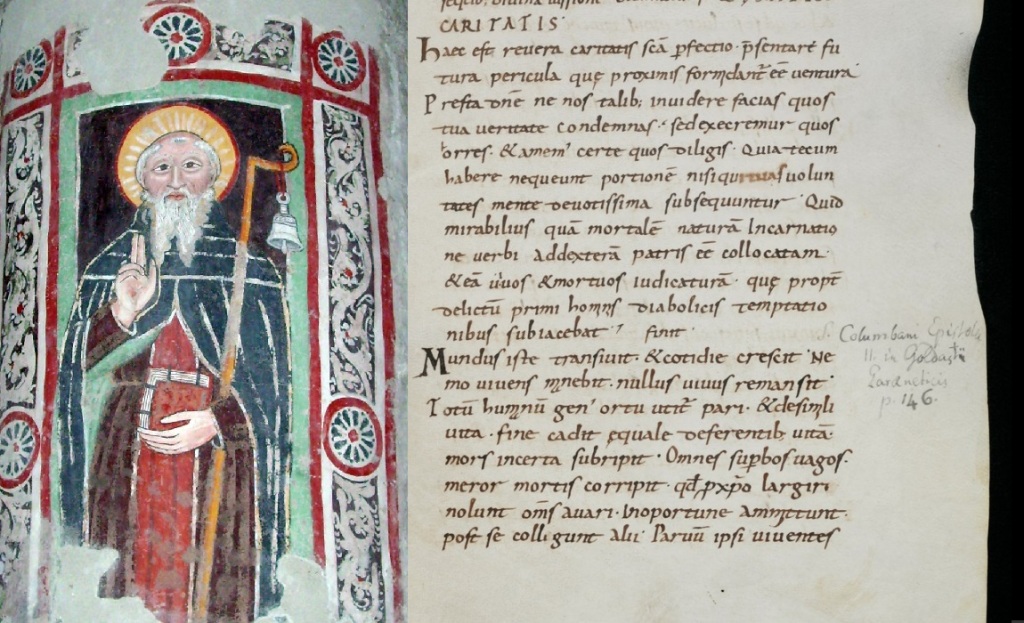 CARITATIS
Haec est revera caritatis scā pfectio · psentare fu
tura pericula quę proximis formidant̄ eē ventura
Presta dn̄e ne nos talib; invidere facias quos
tua veritate condemnas · sed execremur quos
orres · & amem' certe quos diligis · Quia tecum
habere nequeunt portionē nisi qui tuas volun
tates mente devotissima subsequuntur · Quid
mirabilius quā mortalē naturā Incarnatio
ne verbi addexterā patris eē collocatam ·
& eā vivos & mortuos iudicaturā · quę propt̄
delictū primi hominis diabolicis temptatio
nibus subiacebat · finit ·
Mundus iste transivit · & cotidie crescit · Ne
mo vivens manebit · nullus vivus remansit ·
Totū humanū gen' ortu utit̄ pari · & de simili
vita · fine cadit ęquale deferentib; vitā ·
mors incerta subripit · Omnes supbos vagos ·
meror mortis corripit · qd̄ p xp̄o largiri
nolunt om̄s avari · Inoportune amittunt ·
post se colligunt Alii · Parvū ipsi viventes
Columbani Epistola
II. in Goldasti
Paraeneticis
p. 146.